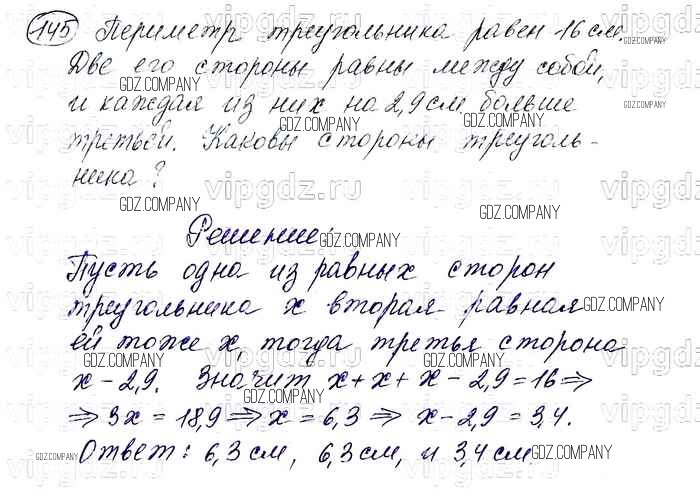 145 Периметр треугольника равен 16 см.
Две его стороны равны между собой,
и каждая из них на 2,9 см больше
третьей. Каковы стороны треуголь-
ника?
Решение:
Пусть одна из равных сторон
треугольника х вторая равная
ей тоже х, тогда третья сторона
х - 2,9. Значит х + х + х - 2,9 = 16 ⇒
⇒ 3х = 18,9 ⇒ х = 6,3 ⇒ х - 2,9 = 3,4.
Ответ: 6,3 см, 6,3 см, и 3,4 см.
vipgdz.ru
GDZ.COMPANY